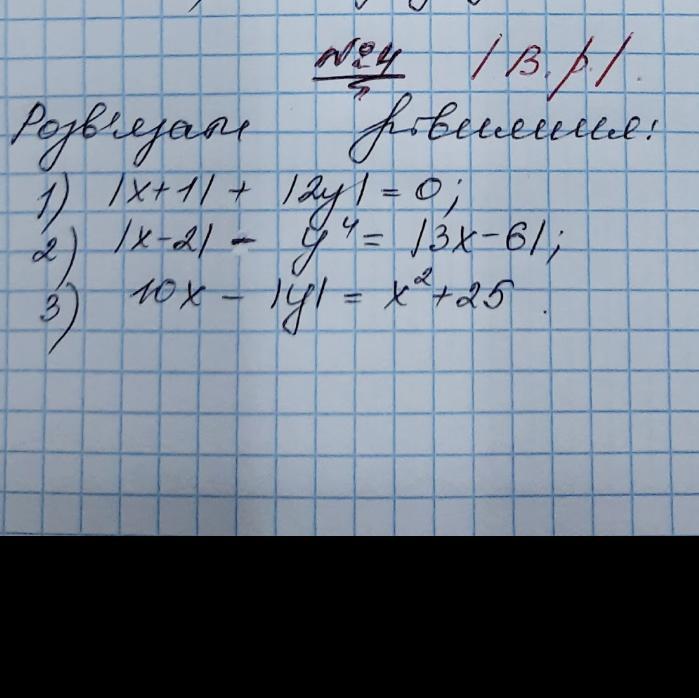 №4 /В.р./.
Розв'язати рівняння:
1) |x+1| + |2y| = 0;
2) |x-2| - y⁴ = |3x-6|;
3) 10x - |y| = x²+25.